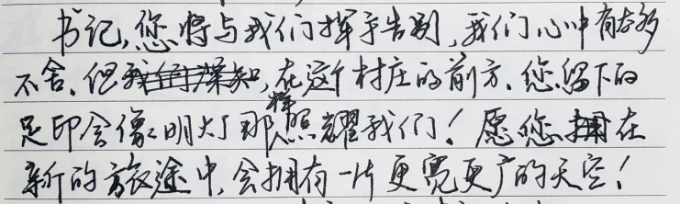 书记,您将与我们挥手告别,我们心中有太多
不舍。但我们深知,在这个村庄的前方,您留下的
足印会像明灯那样照耀我们!愿您拥在
新的旅途中,会拥有一片更宽更广的天空!